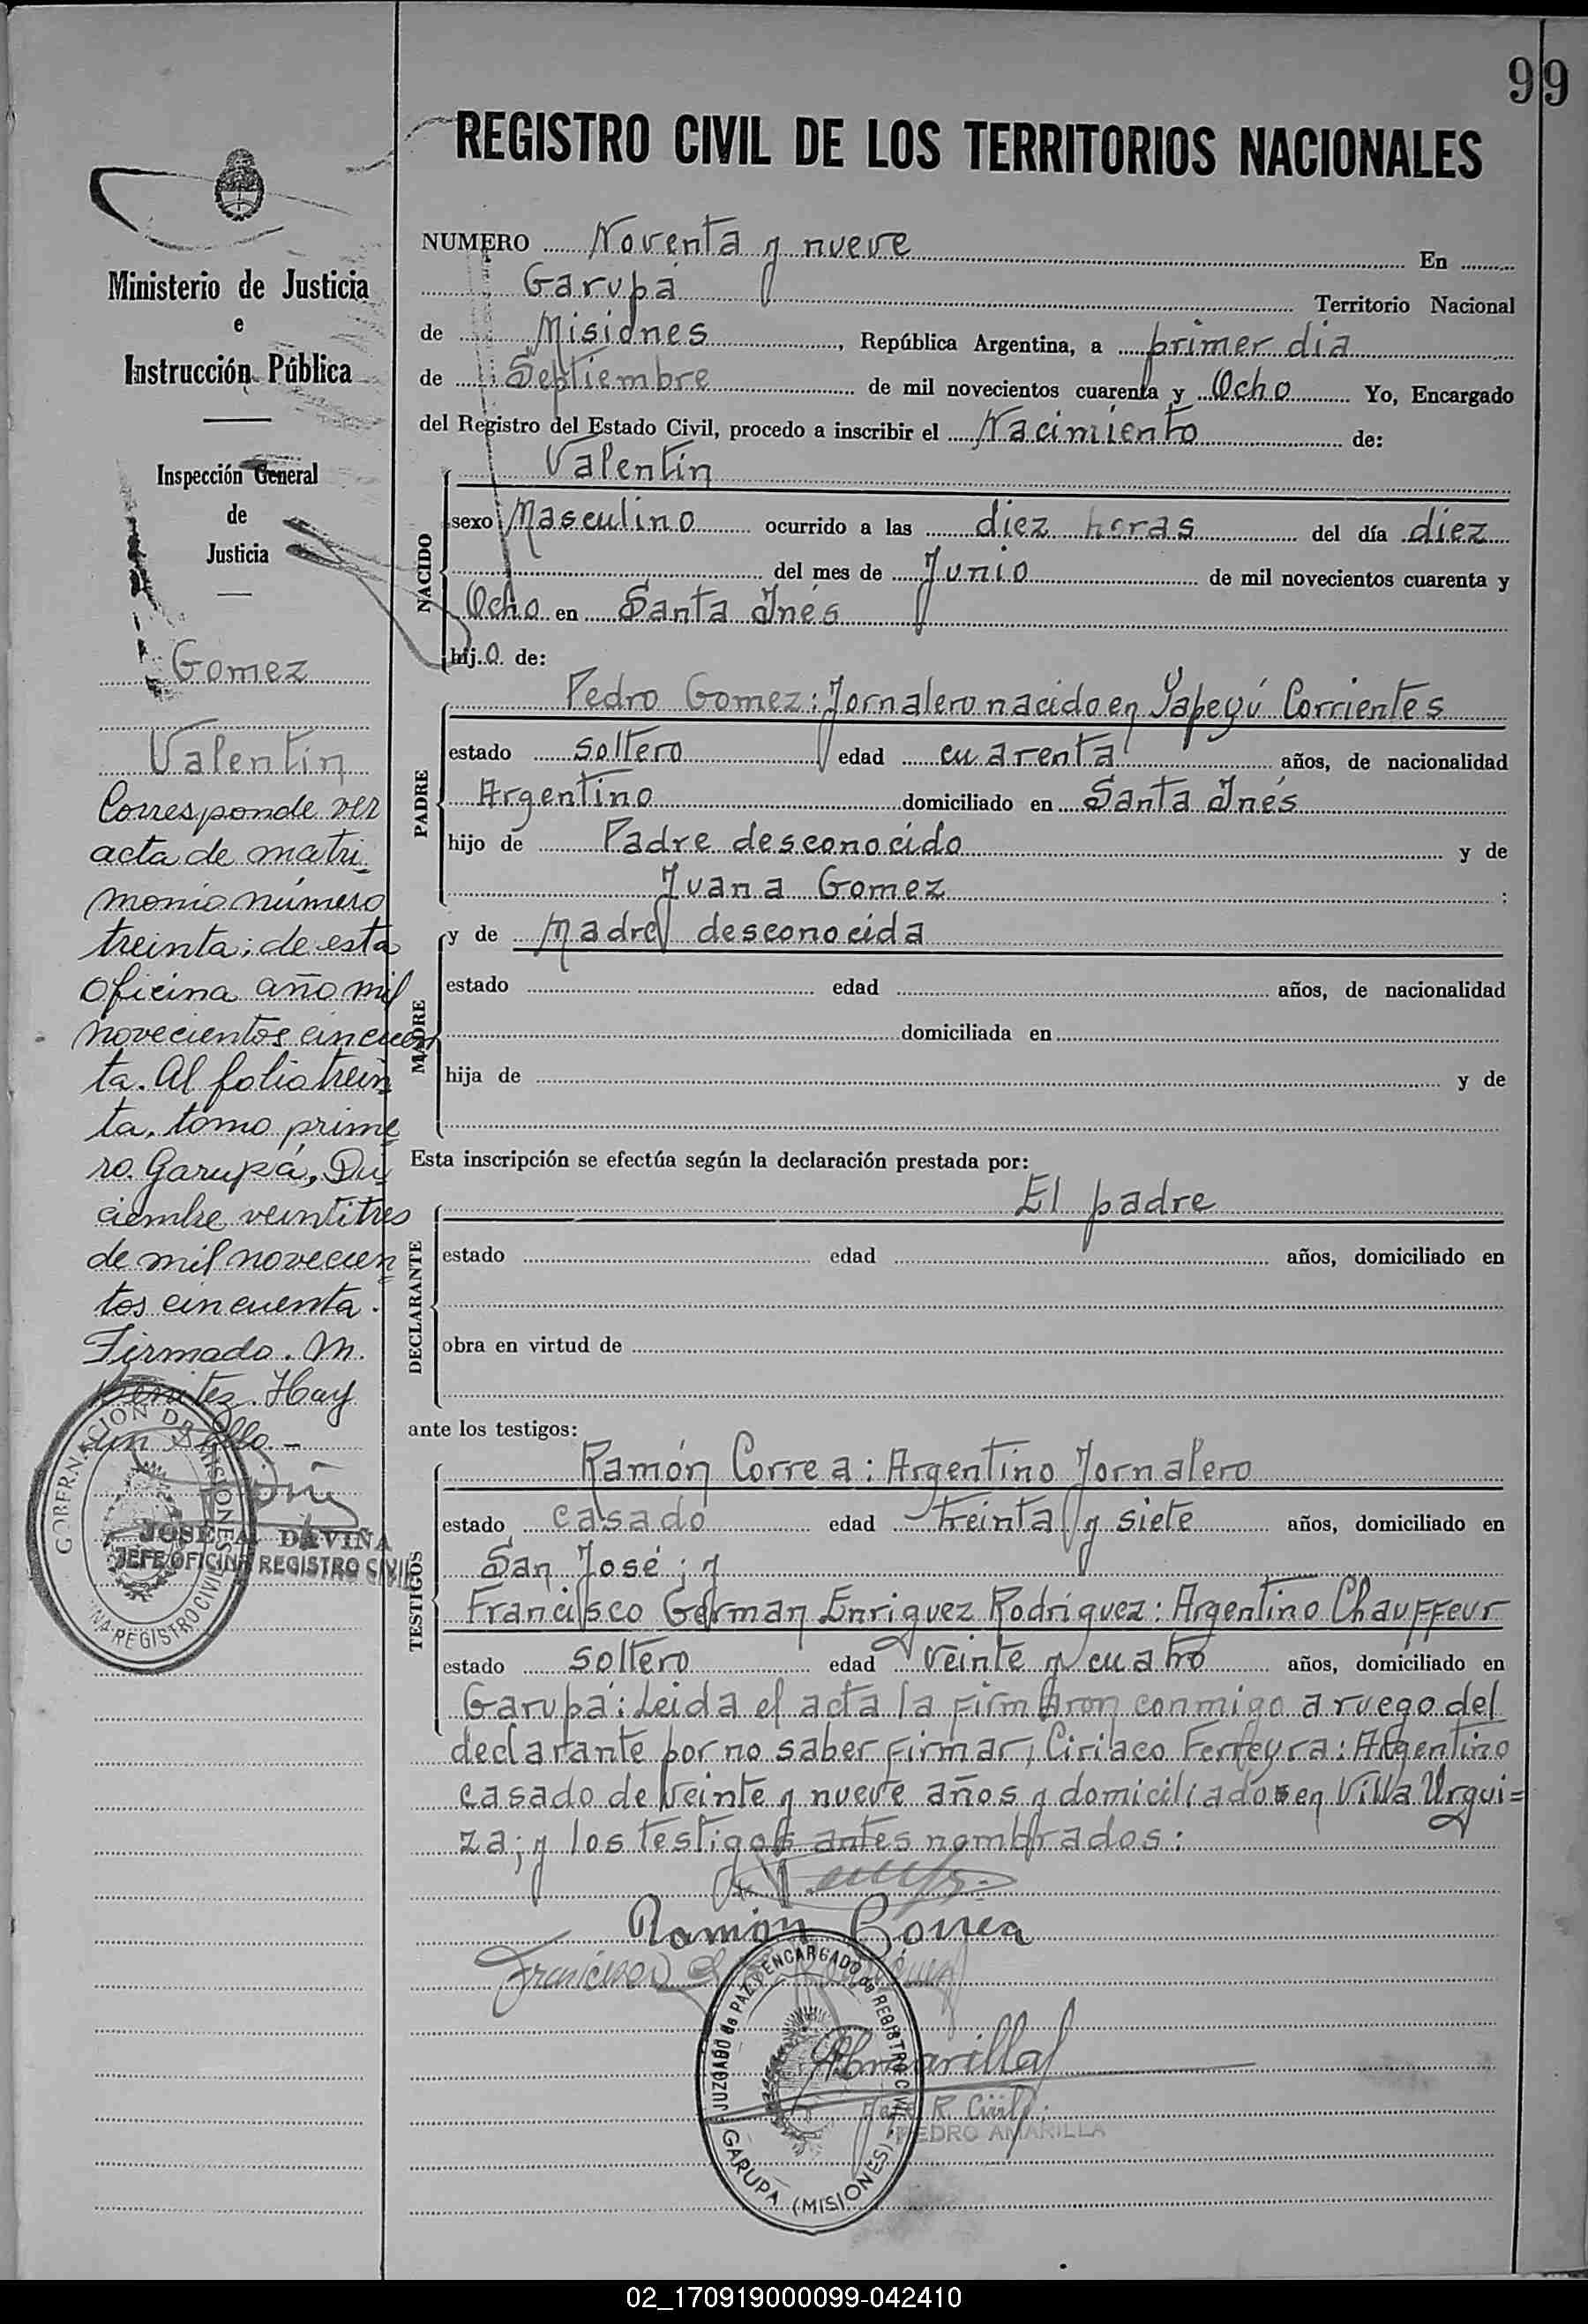 99
REGISTRO CIVIL DE LOS TERRITORIOS NACIONALES
Ministerio de Justicia
e
Instrucción Pública
Inspección General
de
Justicia
Gomez
Valentin
Corresponde ver
acta de matri
monio número
treinta; de esta
Oficina año mil
novecientos cincuen
ta. Al folio trein
ta, tomo prime
ro. Garupá, Di
ciembre veintitres
de mil novecien
tos cincuenta.
Firmado. M.
Benitez. Hay
un Sello. -
GOBERNACION DE MISIONES
REGISTRO CIVIL
JOSE A. DAVIÑA
JEFE OFICINA REGISTRO CIVIL
NUMERO Noventa y nueve En
Garupá Territorio Nacional
de Misiones, República Argentina, a primer dia
de Septiembre de mil novecientos cuarenta y Ocho Yo, Encargado
del Registro del Estado Civil, procedo a inscribir el Nacimiento de:
NACIDO
Valentin
sexo Masculino ocurrido a las diez horas del día diez
del mes de Junio de mil novecientos cuarenta y
Ocho en Santa Inés
hij.o de:
PADRE
Pedro Gomez: Jornalero nacido en Yapeyú Corrientes
estado soltero edad cuarenta años, de nacionalidad
Argentino domiciliado en Santa Inés
hijo de Padre desconocido y de
Juana Gomez ;
MADRE
y de Madre desconocida
estado edad años, de nacionalidad
domiciliada en
hija de y de
Esta inscripción se efectúa según la declaración prestada por:
DECLARANTE
El padre
estado edad años, domiciliado en
obra en virtud de
ante los testigos:
TESTIGOS
Ramón Correa: Argentino Jornalero
estado casado edad treinta y siete años, domiciliado en
San José; y
Francisco German Enriquez Rodriguez: Argentino Chauffeur
estado soltero edad veinte y cuatro años, domiciliado en
Garupá: Leida el acta la firmaron conmigo a ruego del
declarante por no saber firmar, Ciriaco Ferreyra: Argentino
casado de veinte y nueve años y domiciliado en Villa Urqui=
za; y los testigos antes nombrados:
Ramón Correa
Francisco
Amarilla
R. Civil
PEDRO AMARILLA
JUZGADO de PAZ y ENCARGADO de REGISTRO CIVIL
GARUPA (MISIONES)
02_170919000099-042410